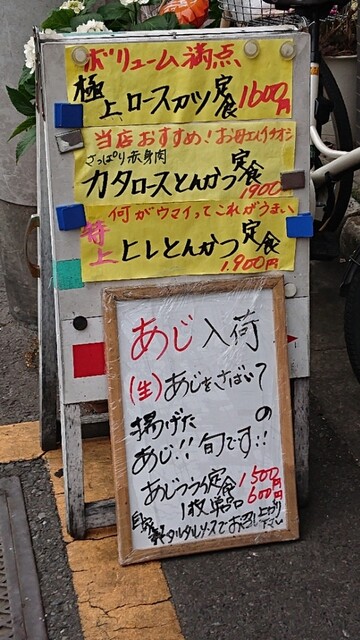 ボリューム満点、
極上 ロースカツ定食 1600円
当店おすすめ！お母さんイチオシ
さっぱり赤身肉
カタロースとんかつ定食
1900円
何がウマイってこれがうまい
特上 ヒレとんかつ定食
1,900円
あじ入荷
(生)あじをさばいて
揚げたの
あじ!!旬です!!
あじフライ定食 1500円
1枚単品 600円
自家製タルタルソースでお召し上がり下さい